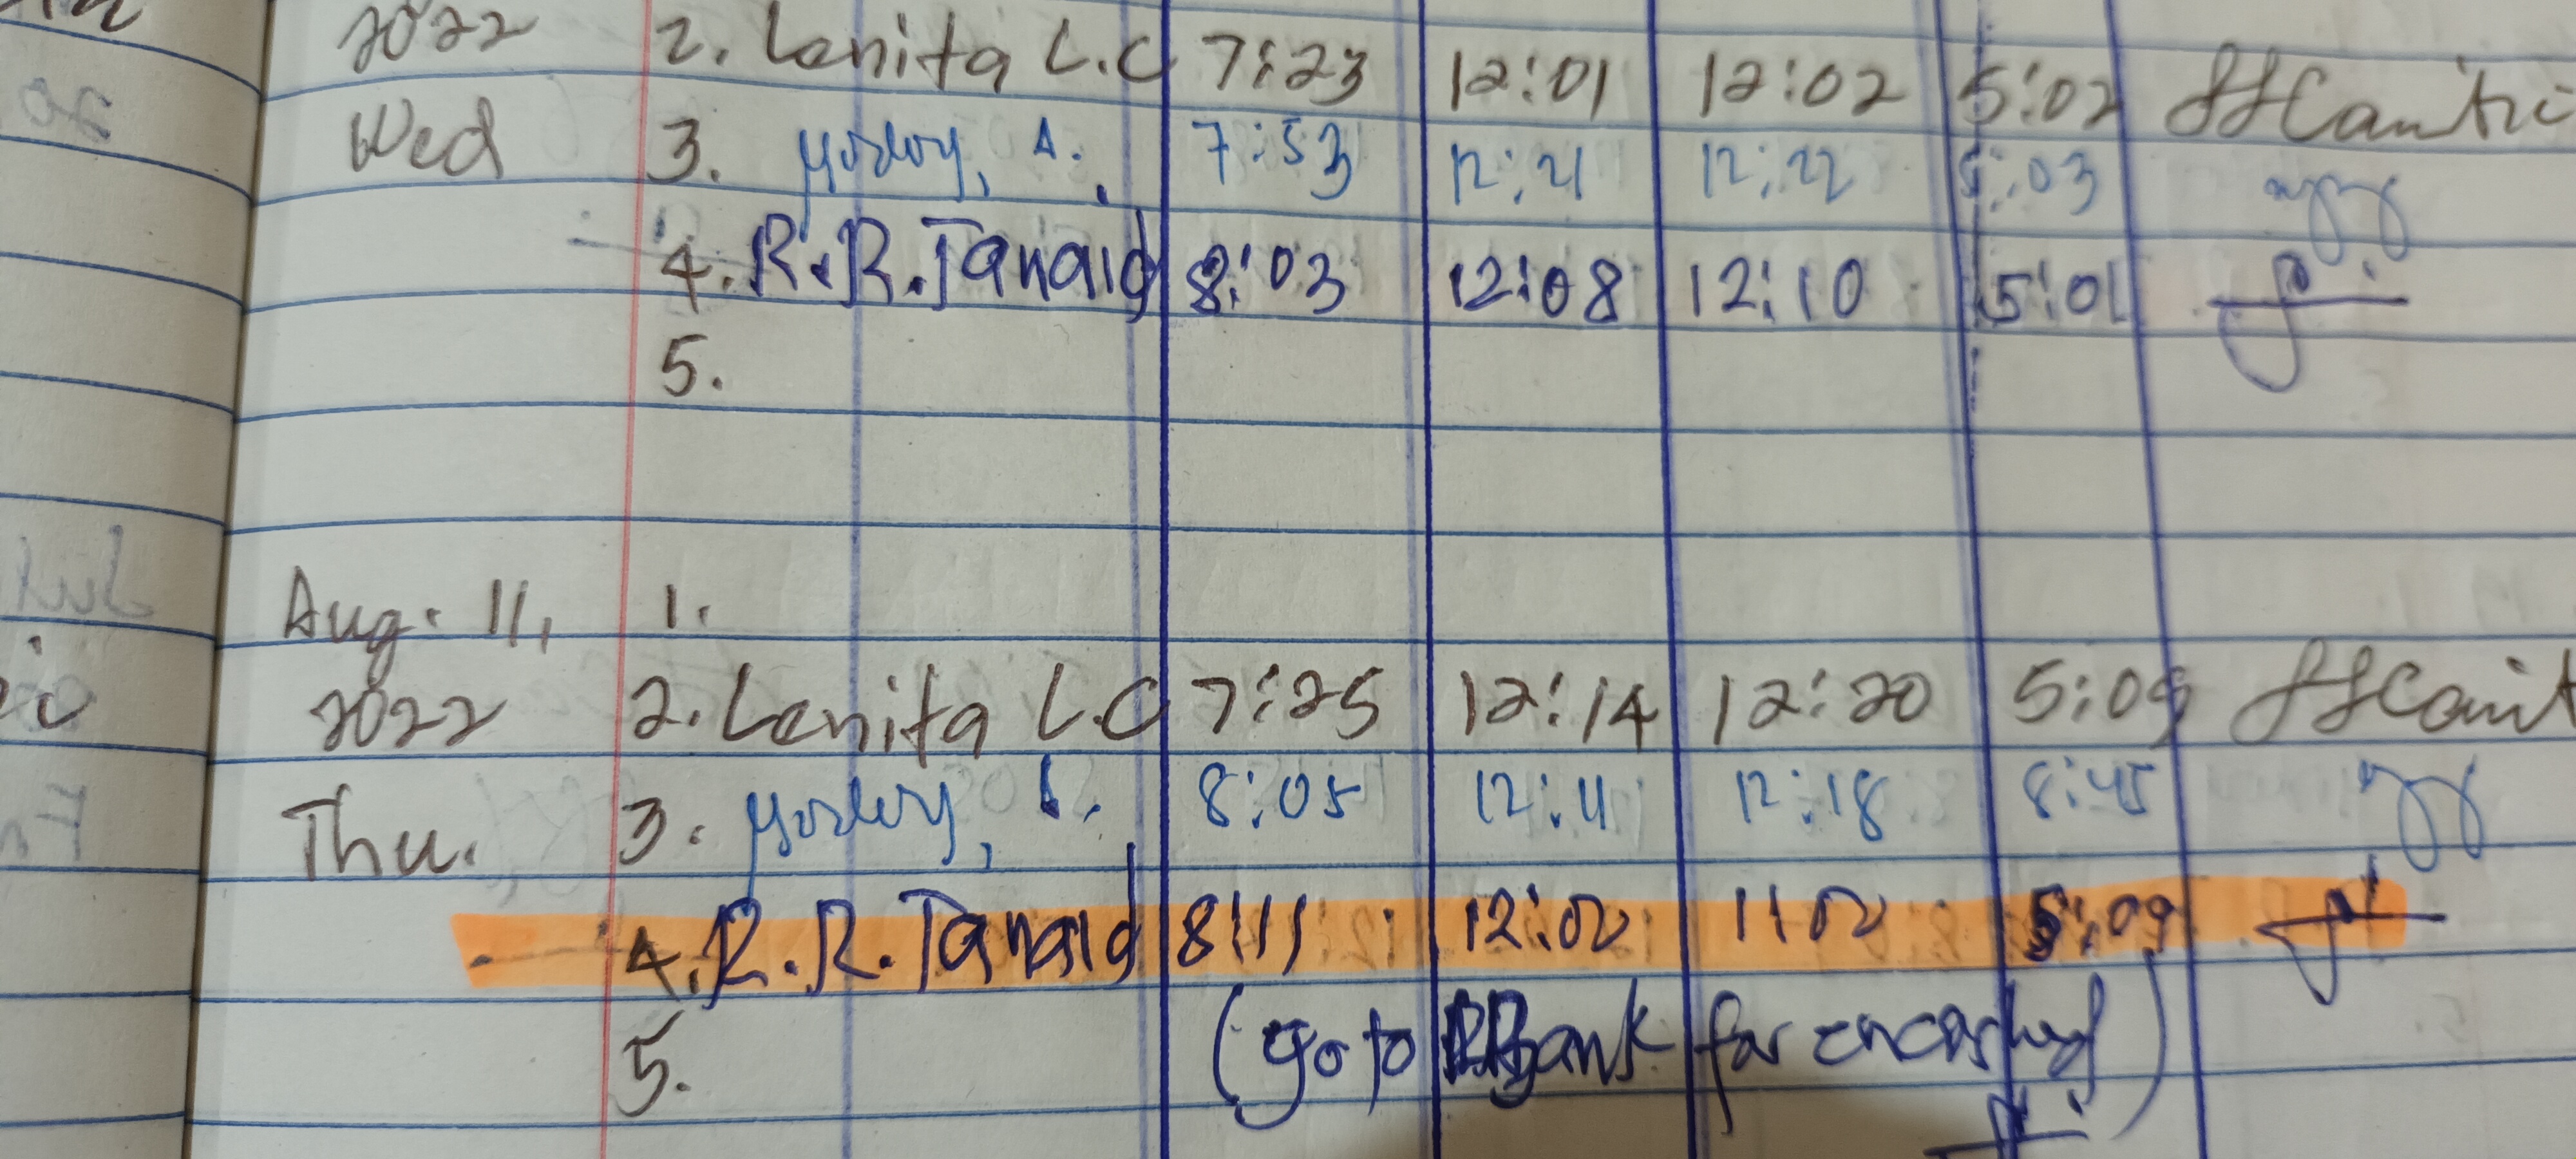 2022 2. Lenita L.C 7:23 12:01 12:02 5:02
Wed 3. 7:53 12:21 12:22 5:03
4. R.R.Tanaid 8:03 12:08 12:10 5:01
5.
Aug. 11, 1.
2022 2. Lenita L.C 7:25 12:14 12:20 5:05
Thu. 3. 8:05 12:11 12:18 8:45
4. R.R.Tanaid 8:11 12:00 1:00 5:09
5. (go to Bank for encashed)